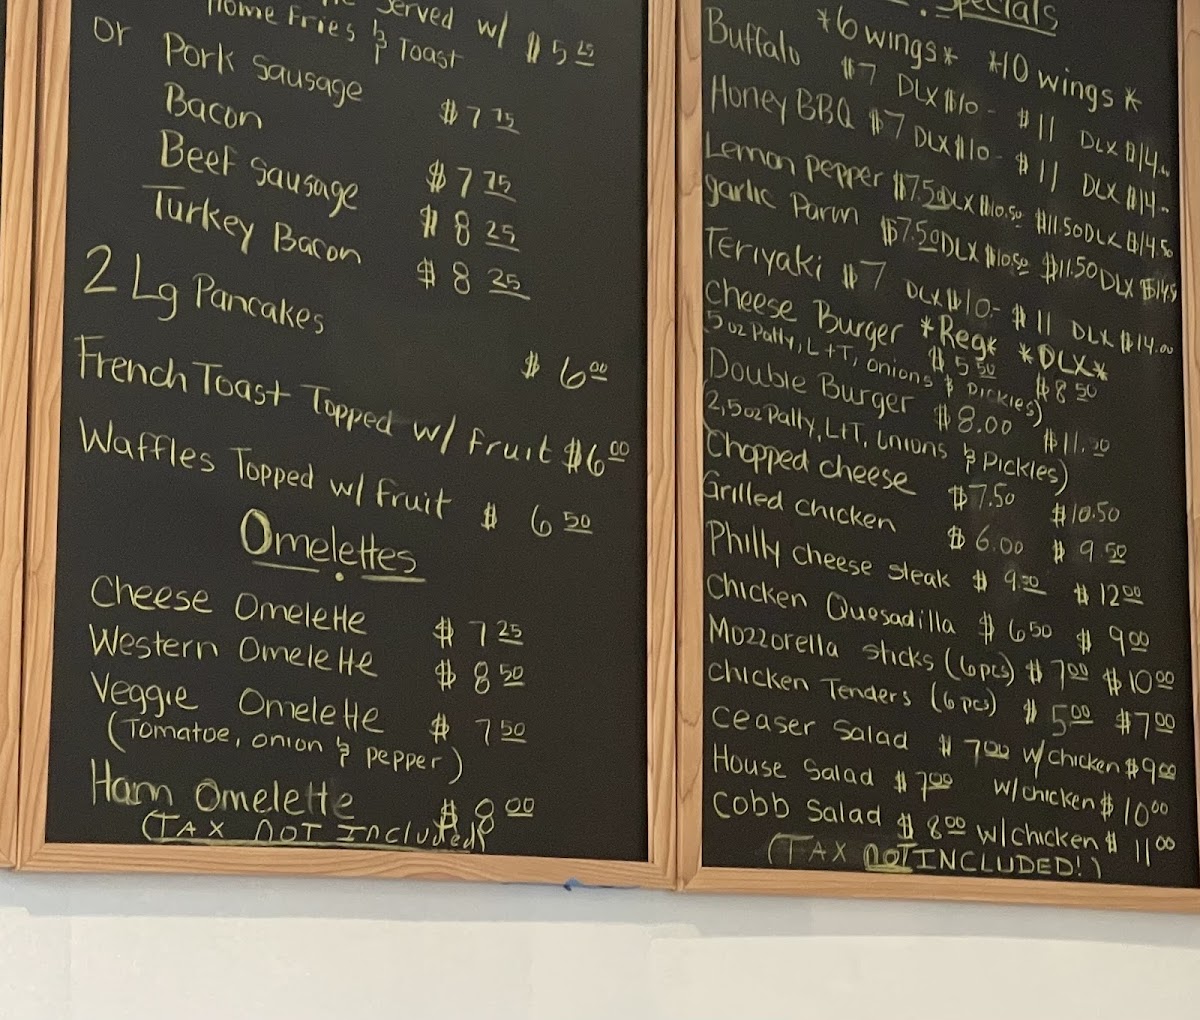 Served w/
Home Fries & Toast $5 25
or Pork Sausage $7 75
Bacon $7 75
Beef Sausage $8 25
Turkey Bacon $8 25
2 Lg Pancakes $6 00
French Toast Topped w/ Fruit $6 00
Waffles Topped w/ Fruit $6 50
Omelettes
Cheese Omelette $7 25
Western Omelette $8 50
Veggie Omelette $7 50
(Tomatoe, onion & pepper)
Ham Omelette $8 00
(TAX NOT Included)
Specials
*6 wings* *10 wings*
Buffalo $7 DLX $10- $11 DLX $14..
Honey BBQ $7 DLX $10- $11 DLX $14..
Lemon pepper $7.50 DLX $10.50 $11.50 DLX $14.50
garlic Parm $7.50 DLX $10.50 $11.50 DLX $14.5
Teriyaki $7 DLX $10.- $11 DLX $14.00
Cheese Burger *Reg* *DLX*
(5 oz Patty, L+T, onions & Pickles) $5 50 $8 50
Double Burger $8.00 $11.50
(2, 5oz Patty, L+T, Onions & Pickles)
Chopped cheese $7.50 $10.50
Grilled chicken $6.00 $9.50
Philly cheese steak $9.50 $12 00
Chicken Quesadilla $6 50 $9 00
Mozzorella sticks (6pcs) $7 00 $10 00
Chicken Tenders (6pcs) $5 00 $7 00
Ceaser Salad $7 00 w/chicken $9 00
House Salad $7 00 w/chicken $10 00
Cobb Salad $8 00 w/chicken $11 00
(TAX NOT INCLUDED!)